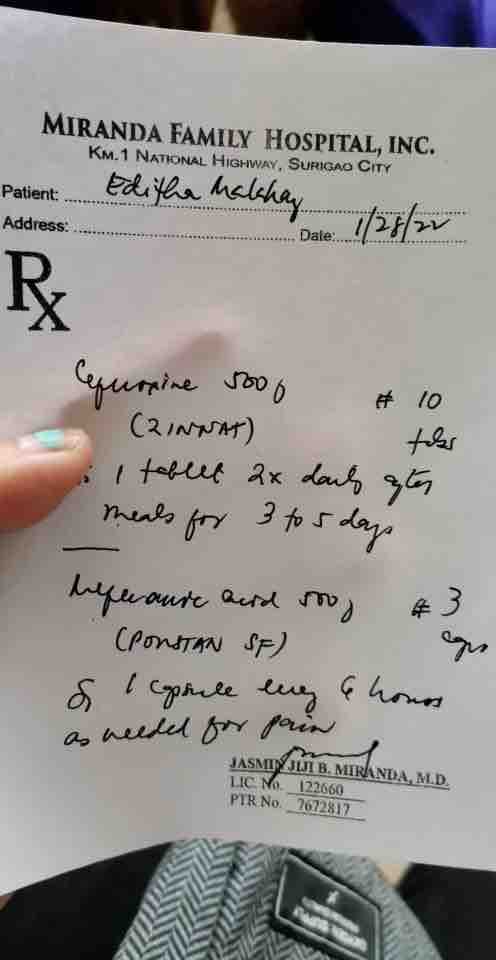 MIRANDA FAMILY HOSPITAL, INC.
KM.1 NATIONAL HIGHWAY, SURIGAO CITY
Patient: Editha
Address: Date: 1/28/22
Rx
Cefuroxime 500g # 10
(ZINNAT) tabs
1 tablet 2x daily after
meals for 3 to 5 days
Mefenamic acid 500g # 3
(PONSTAN SF) caps
1 capsule every 6 hours
as needed for pain
JASMIN JIJI B. MIRANDA, M.D.
LIC. No. 122660
PTR No. 7672817